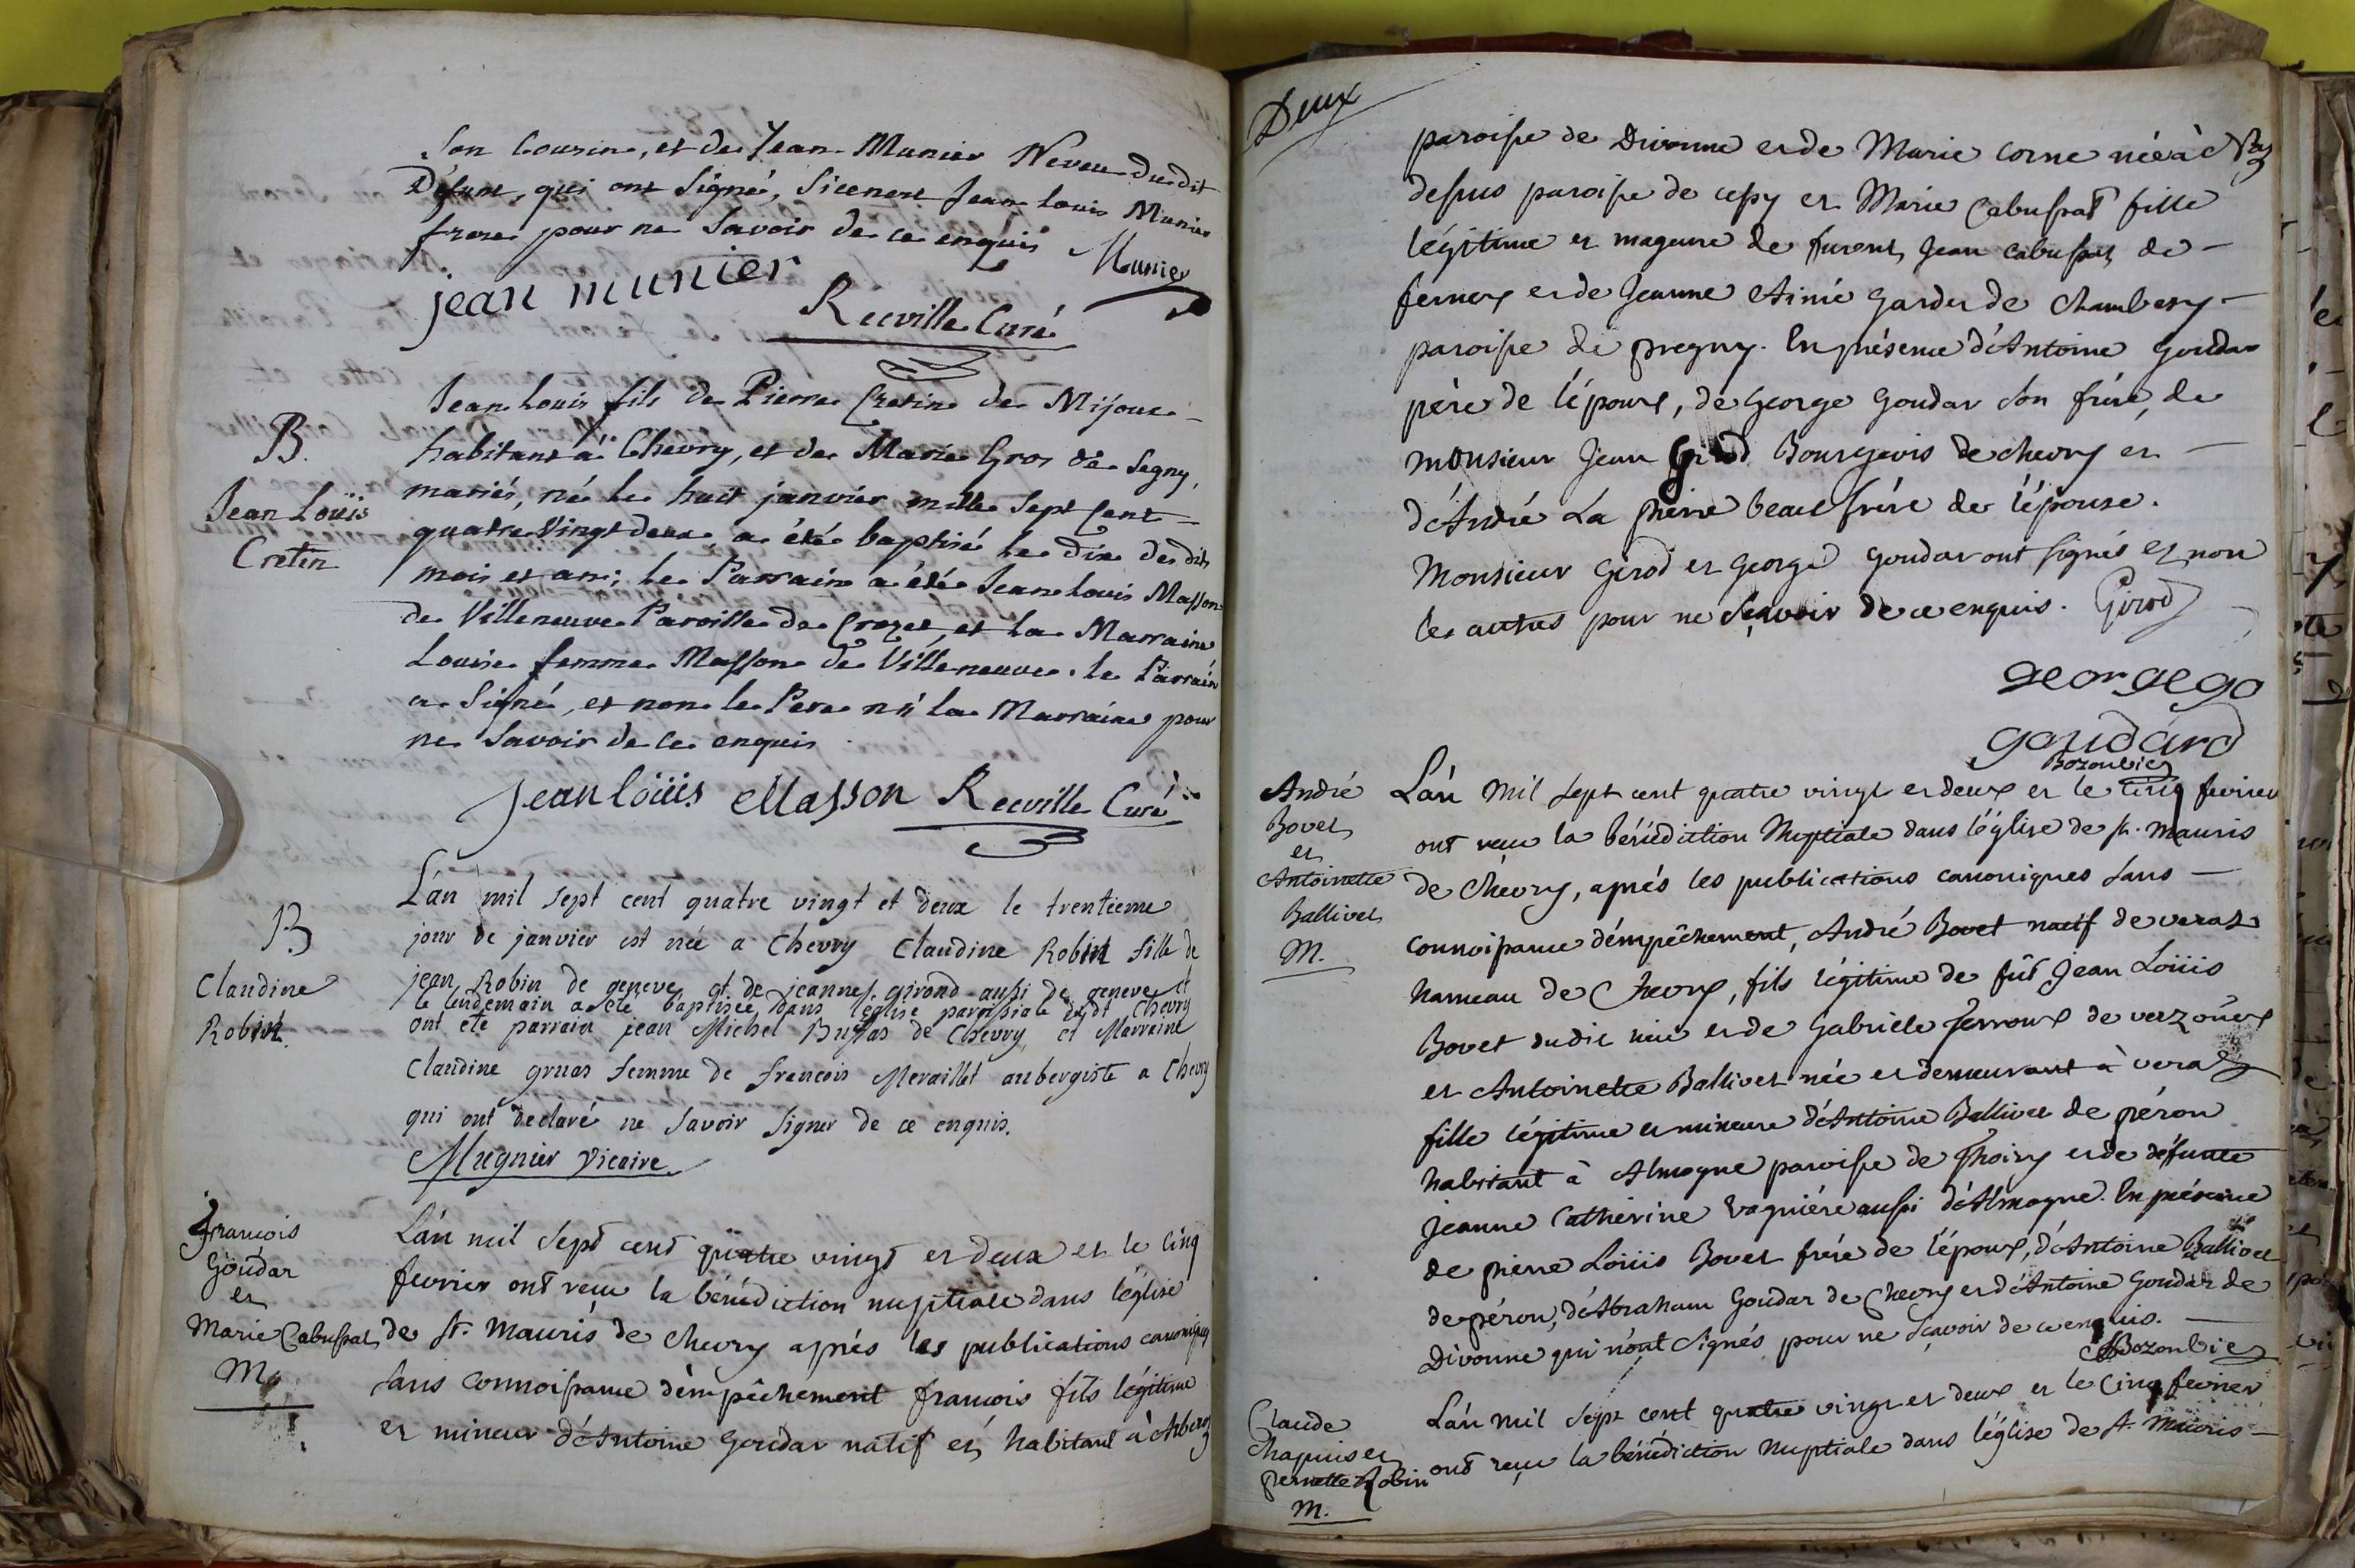 Son Cousin, et de Jean Munier Neveu du dit
Défunt, qui ont Signé, Sicenest Jean Louis Munier
frere pour ne Savoir de ce enquis Munier
jean munier
Reville Curé
B.
Jean Loüis
Cretin
Jean Louis fils de Pierre Cretin de Mijoux
habitant à Chevry, et de Marie Gros de Segny,
mariés, né le huit janvier mille Sept Cent
quatre Vingt deux, a été baptisé le dix des dits
mois et an; le Parrain a été Jean Louis Masson
de Villeneuve Paroisse de Crozet, et la Marraine
Louise femme Masson de Villeneuve. le Parrain
a Signé, et non le Pere ni la Marraine pour
ne Savoir de ce enquis
jean loüis Masson Reville Curé
B
Claudine
Robin
L'an mil sept cent quatre vingt et deux le trentieme
jour de janvier est née a Chevry Claudine Robin fille de
jean Robin de geneve et de jeanne girond aussi de geneve et
le lendemain a été baptisée dans l'église paroissiale dudt Chevry
ont été parrain jean Michel Bussas de Chevry et Marraine
Claudine gruas femme de francois Meraillet aubergiste a Chevry
qui ont declaré ne savoir signer de ce enquis.
Mugnier Vicaire
françois
Goudar
et
Marie Cabussat
M.
L'an mil sept cent quatre vingt et deux et le cinq
fevrier ont reçu la bénédiction nuptiale dans l'église
de St. Mauris de chevry aprés les publications canoniques
sans connoissance d'empêchement françois fils légitime
et mineur d'Antoine Goudar natif et habitant à Arbere
Deux
paroisse de Divonne et de Marie Corne née à
dessus paroisse de cessy et Marie Cabussat fille
légitime et mageure de furent Jean cabussat de
fernex et de Jeanne Aimé Garder de Chambesy
paroisse de pregny. En présence d'Antoine Goudar
père de l'époux, de George Goudar son frére, de
monsieur Jean Girod Bourgeois de chevry et
d'André La pierre beau frére de l'épouse.
Monsieur Girod et George Goudar ont signés et non
les autres pour ne sçavoir de ce enquis. Girod
george go
goudard
Bozonbier
André
Bovet
et
Antoinette
Ballivet
M.
L'an mil sept cent quatre vingt et deux et le cinq fevrier
ont reçu la bénédiction Nuptiale dans l'église de St. Mauris
de Chevry, aprés les publications canoniques sans
connoissance d'empêchement, André Bovet natif de veraz
hameau de Chevry, fils légitime de fût Jean Loüis
Bovet dudit lieu et de Gabriele Perroux de verzoüex
et Antoinette Ballivet née et demeurant à veraz
fille légitime et mineure d'Antoine Ballivet de péron
habitant à Almogne paroisse de Thoiry et de défunte
Jeanne Catherine vagniére aussi d'Almogne. En présence
de pierre Loüis Bovet frére de l'époux, d'Antoine Ballivet
de péron, d'Abraham Goudar de Chevry et d'Antoine Goudar de
Divonne qui n'ont signés pour ne sçavoir de ce enquis.
Bozonbier
Claude
Chapuis et
pernette Robin
M.
L'an mil sept cent quatre vingt et deux et le Cinq fevrier
ont reçu la bénédiction Nuptiale dans l'église de St. Mauris